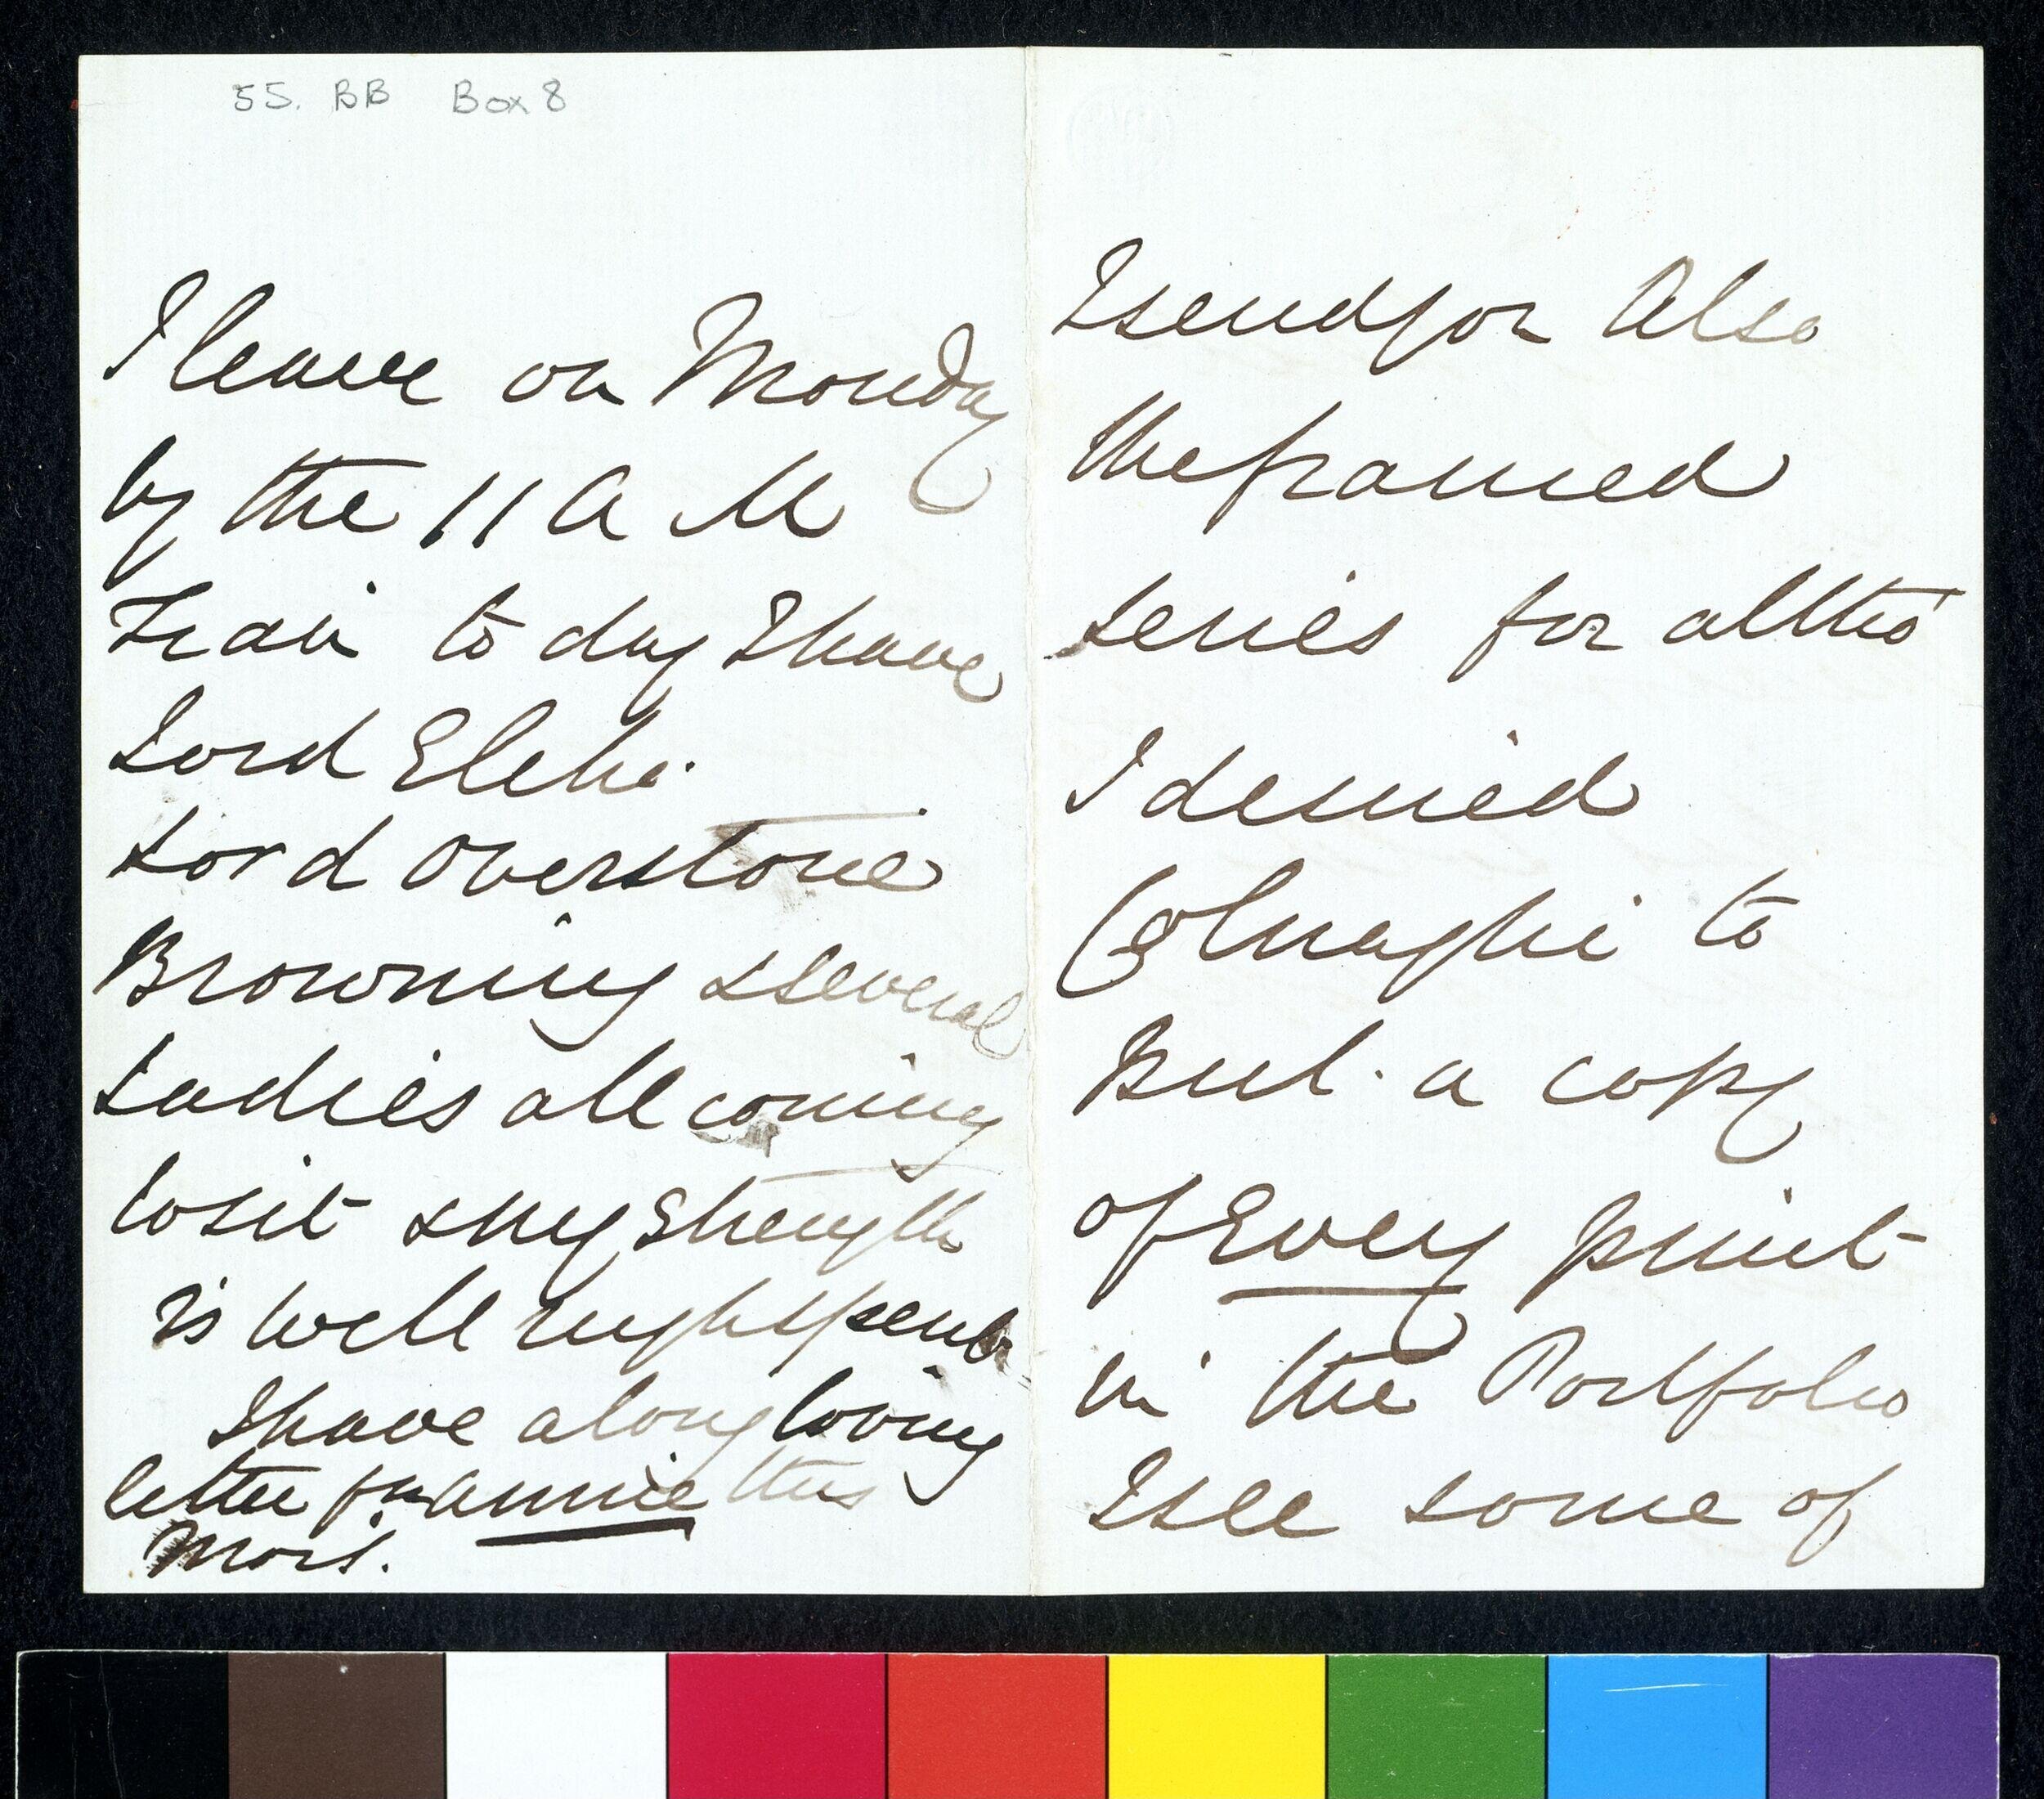 55. BB Box 8
I leave on Monday
by the 11 A M
Train to day I have
Lord Elcho.
Lord Overstone
Browning & several
Ladies all coming
to sit & my strength
is well nigh spent
I have a long loving
letter fm Annie this
Morg.
I send for Also
the framed
series for altho'
I desired
Colnaghi to
Put a copy
of Every print
in the Portfolio
I see some of